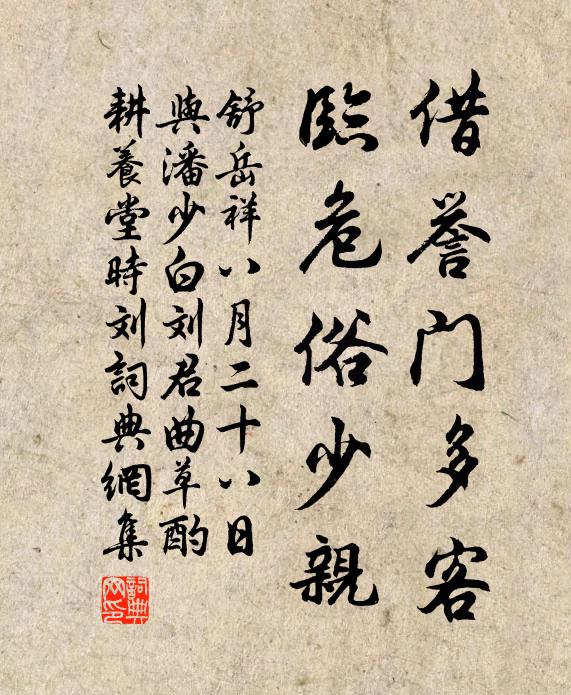 借誉门多客
臨危俗少親
舒岳祥八月二十八日
與潘少白刘君曲草酌
耕養堂時刘詞典網集
詞典网印